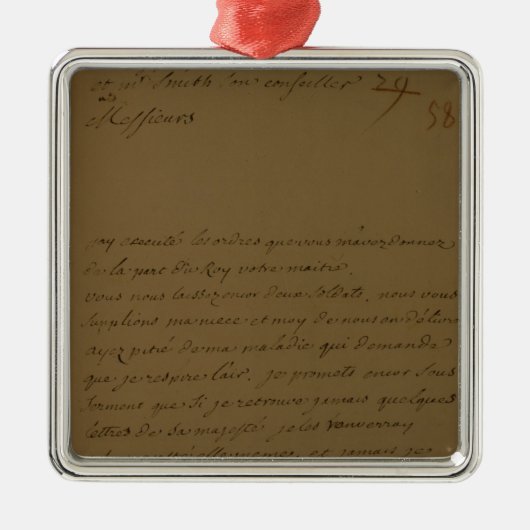 et mr Smith son conseiller 29
58
Messieurs
jay executé les ordres que vous m'avez donnez
de la part du Roy votre maitre.
vous nous laissez encor deux soldats. nous vous
supplions ma niece et moy de nous en délivrer
ayez pitié de ma maladie qui demande
que je respire l'air. je promets encor sous
serment que si je retrouve jamais quelques
lettres de sa majesté je les renverray
et jamais je